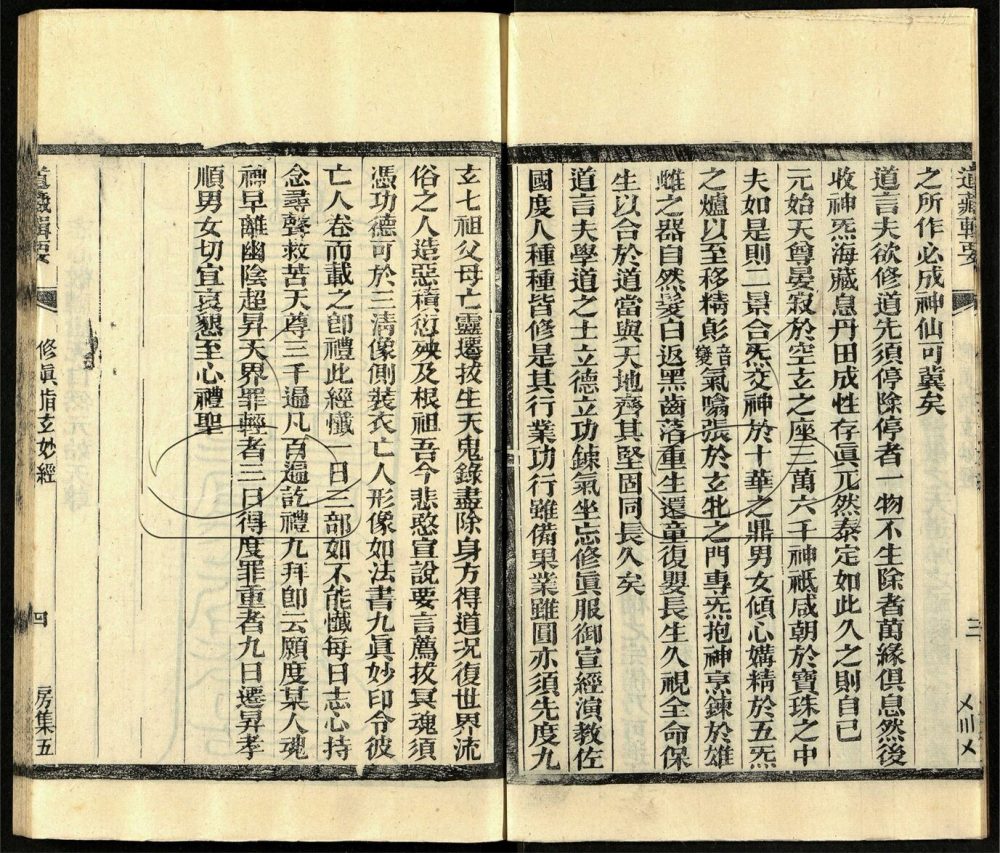 道藏輯要
三
之所作必成神仙可冀矣
道言夫欲修道先須停除停者一物不生除者萬緣俱息然後
收神炁海藏息丹田成性存眞兀然泰定如此久之則自已
元始天尊晏寂於空玄之座三萬六千神祇咸朝於寶珠之中
夫如是則二景合炁交神於十華之鼎男女傾心媾精於五炁
之爐以至移精彭音變氣噏張於玄牝之門專炁抱神烹鍊於雄
雌之器自然髮白返黑齒落重生還童復嬰長生久視全命保
生以合於道當與天地齊其堅固同長久矣
道言夫學道之士立德立功鍊氣坐忘修眞服御宣經演教佐
國度人種種皆修是其行業功行雖備果業雖圓亦須先度九
玄七祖父母亡靈遷拔生天鬼錄盡除身方得道況復世界流
俗之人造惡積衍殃及根祖吾今悲愍宣說要言薦拔冥魂須
憑功德可於三清像側裝衣亡人形像如法書九眞妙印令彼
亡人卷而載之卽禮此經懺一日三部如不能懺每日志心持
念尋聲救苦天尊三千遍凡百遍訖禮九拜卽云願度某人魂
神早離幽陰超昇天界罪輕者三日得度罪重者九日遷昇孝
順男女切宜哀懇至心禮聖
道藏輯要
修眞指玄妙經
四
房集五